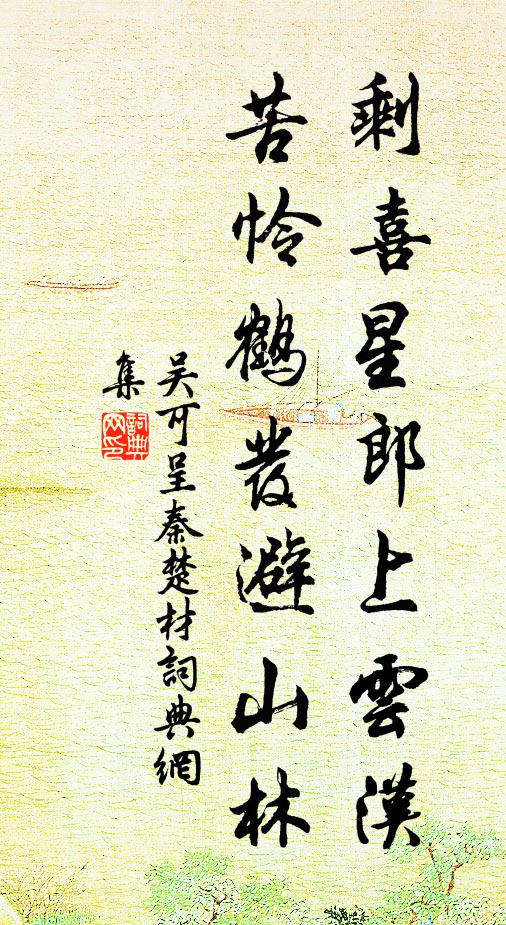 剩喜星郎上雲漢
苦怜鶴发避山林
吴可呈秦楚材詞典網
集
詞典网印